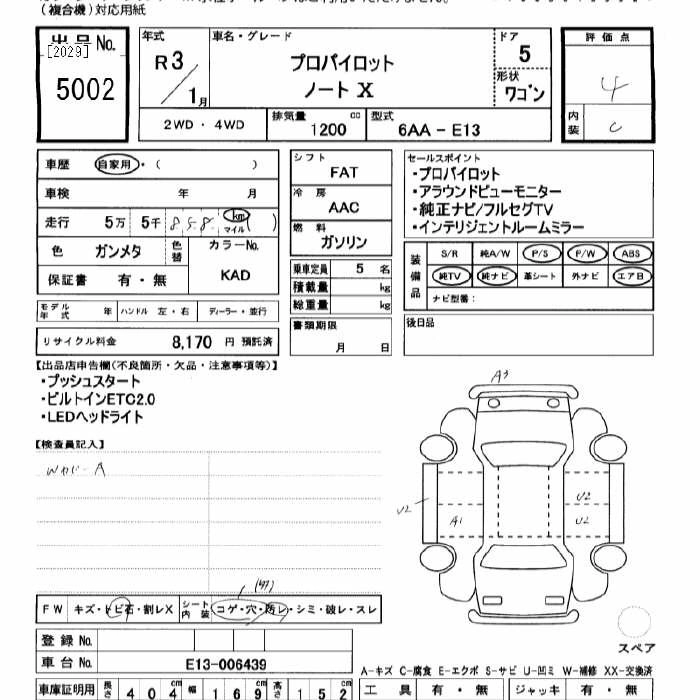 (複合機)対応用紙
出品No.
[2029]
5002
年式
R3/1月
車名・グレード
プロパイロット
ノート X
ドア
5
形状
ワゴン
評価点
4
内装
C
2WD・4WD
排気量 1200 cc
型式 6AA-E13
車歴 自家用・( )
車検 年 月
走行 5万 5千 858 km マイル ( )
色 ガンメタ 色替
カラーNo. KAD
保証書 有・無
シフト FAT
冷房 AAC
燃料 ガソリン
乗車定員 5 名
積載量 kg
総重量 kg
書類期限
月 日
セールスポイント
・プロパイロット
・アラウンドビューモニター
・純正ナビ/フルセグTV
・インテリジェントルームミラー
装備品
S/R 純A/W P/S P/W ABS
純TV 純ナビ 革シート 外ナビ エアB
ナビ型番:
後日品
モデル年式 年 ハンドル 左・右 ディーラー・並行
リサイクル料金 8,170 円 預託済
【出品店申告欄(不良箇所・欠品・注意事項等)】
・プッシュスタート
・ビルトインETC2.0
・LEDヘッドライト
【検査員記入】
A3
U2
A1
U2
U2
FW キズ・トビ石・割レX シート内装 コゲ・穴・汚レ・シミ・破レ・スレ
登録No.
車台No. E13-006439
スペア
A-キズ C-腐食 E-エクボ S-サビ U-凹ミ W-補修 XX-交換済
車庫証明用 長さ 404 cm 幅 169 cm 高さ 152 cm
工具 有・無 ジャッキ 有・無